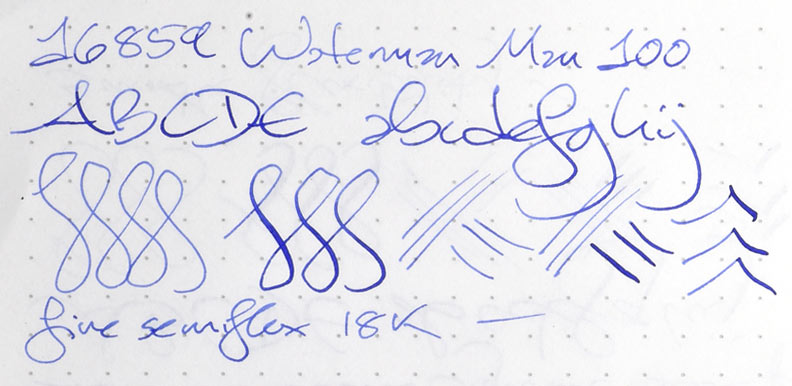 16859 Waterman Man 100
ABCDE abcdefghij
fine semiflex 18K —